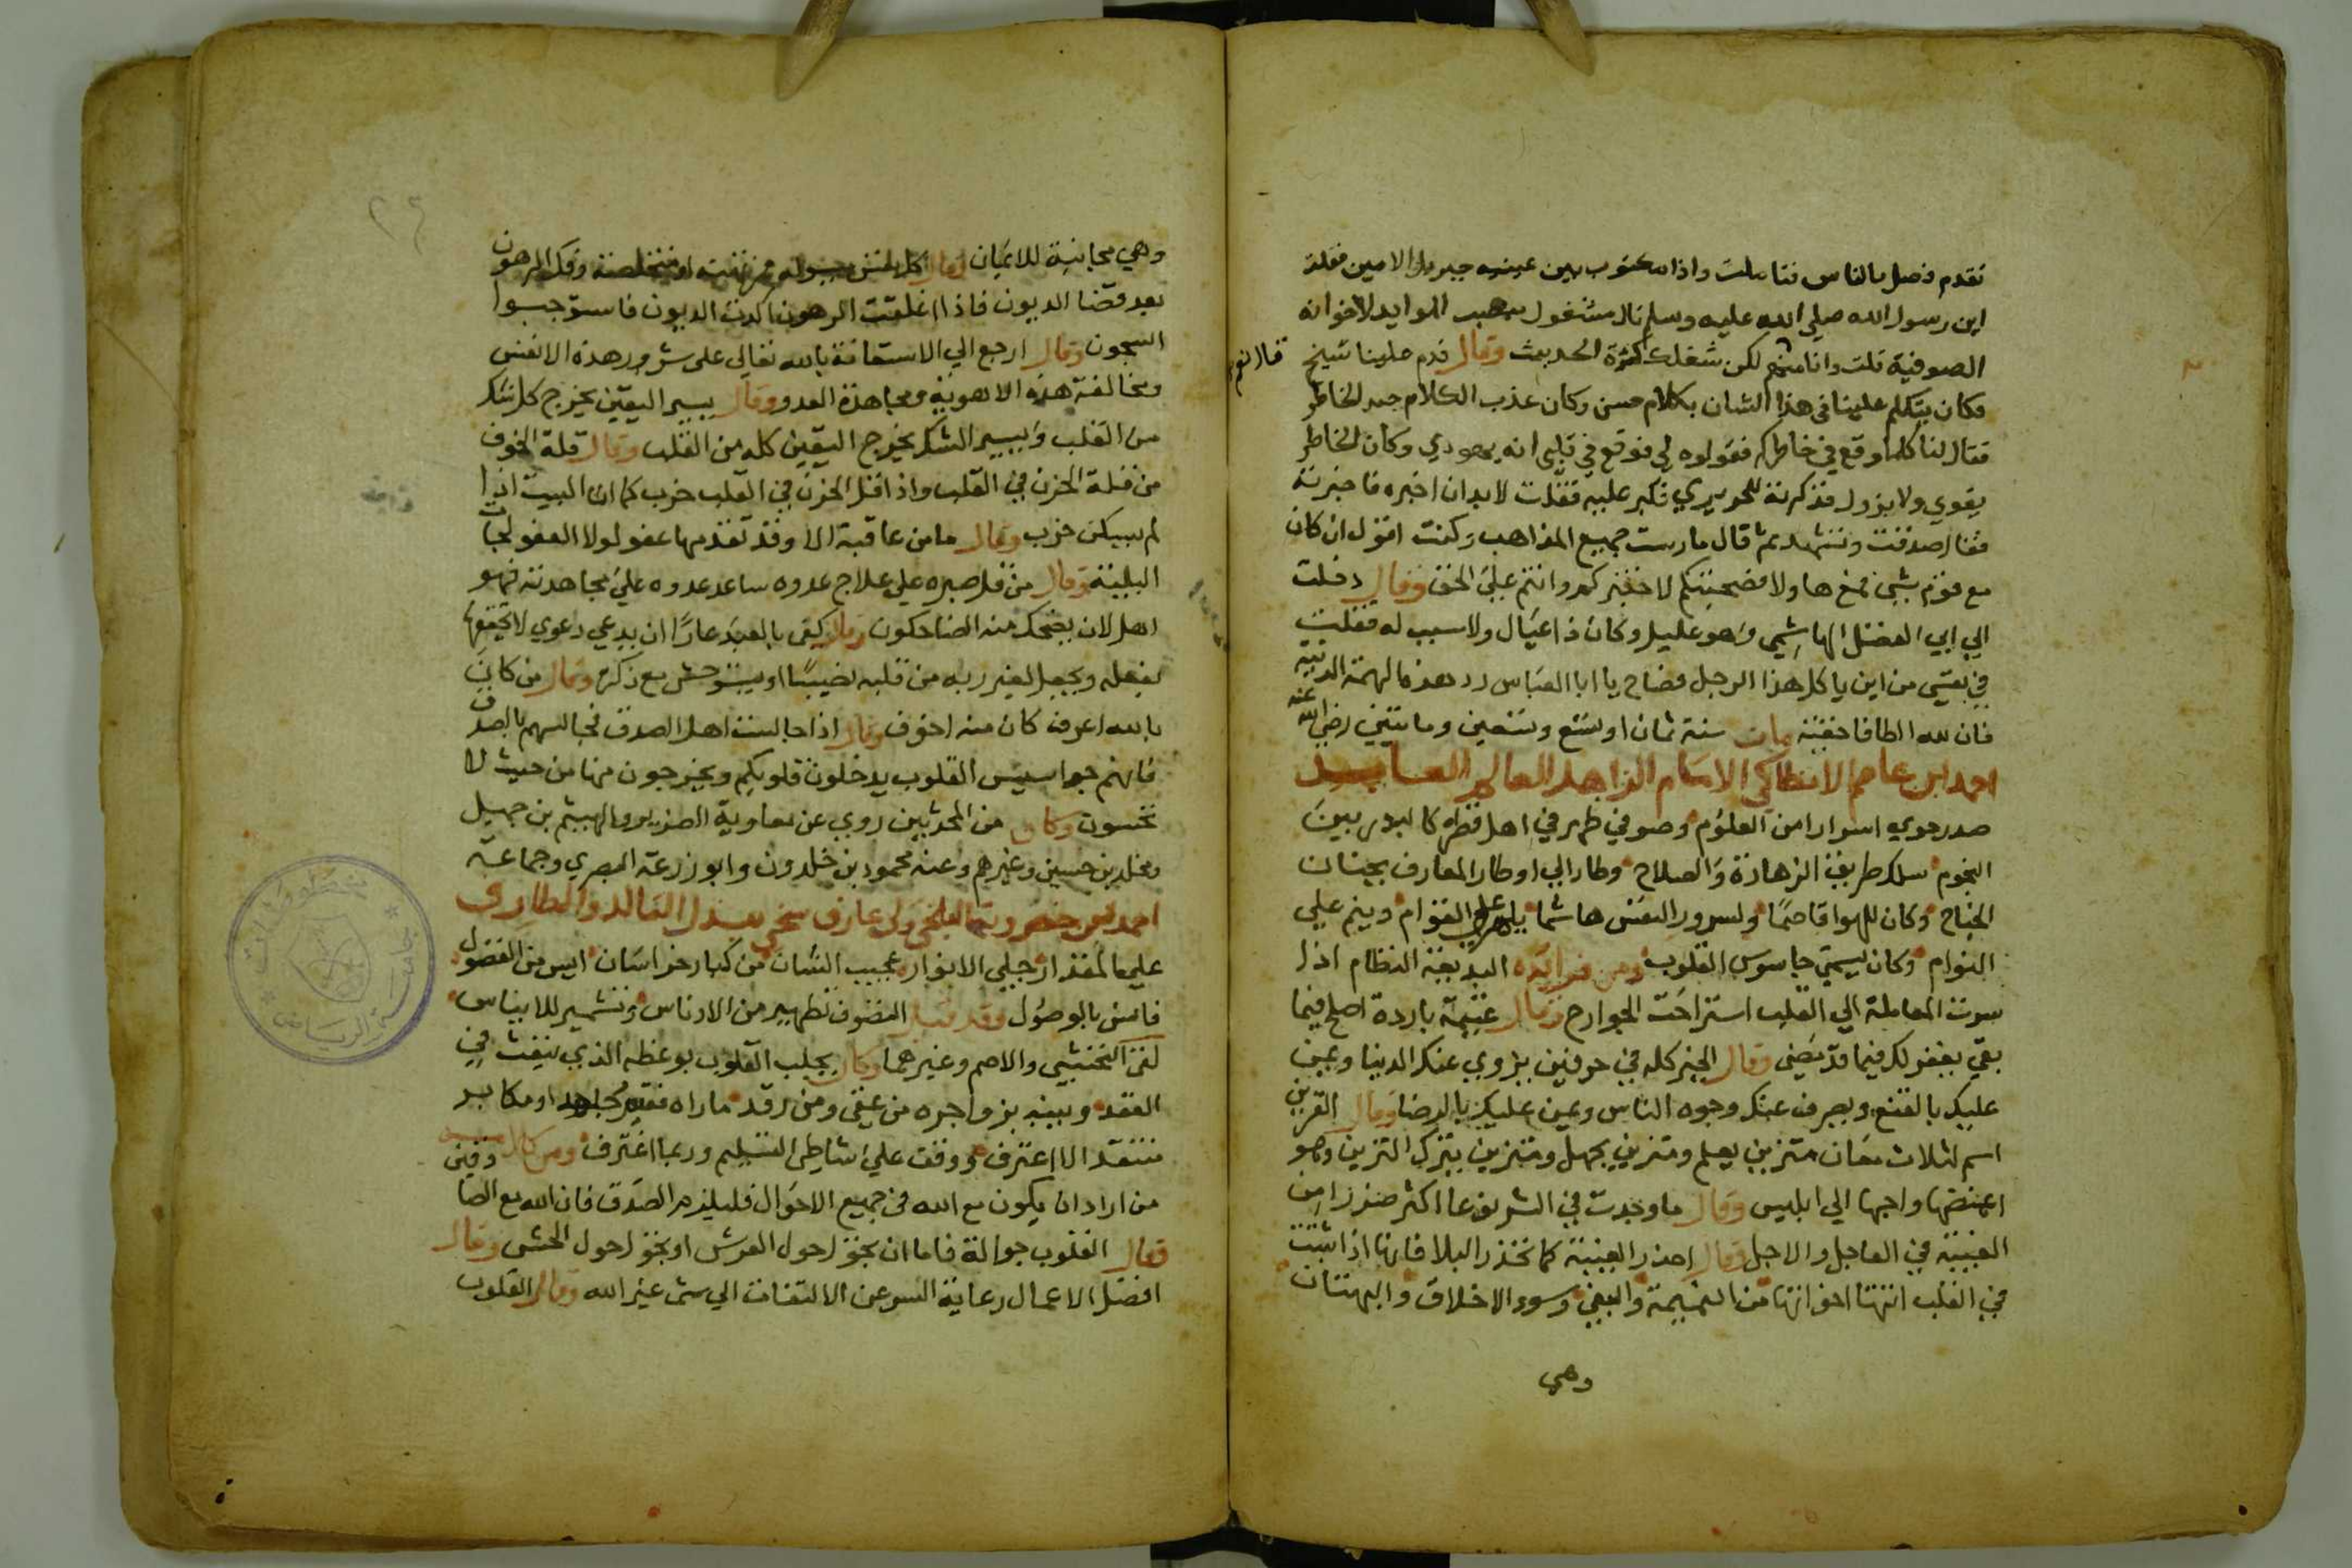 تقدم فصل بالناس فتأملت واذا مكتوب بين عينيه جبريل الامين فقلت
ابن رسول الله صلي الله عليه وسلم قال مشغول بنصب الموايد لاخوانه
الصوفية قلت وانا منهم لكن شغلك كثرة الحديث وقال قدم علينا شيخ
قال نعم
فكان يتكلم علينا في هذا الشان بكلام حسن وكان عذب الكلام جيد الخاطر
فقال لنا كلما وقع في خاطركم فقولوه لي فوقع في قلبي انه يهودي وكان الخاطر
يقوي ولا يزول فذكرته للحريري فكبر عليه فقلت لابد ان اخبره فاخبرته
فقال صدقت وتشهد ثم قال مارست جميع المذاهب وكنت اقول ان كان
مع قوم شي فمع هاولا فصحبتكم لاختبركم وانتم علي الحق وقال دخلت
الي ابي الفضل الهاشمي وهو عليل وكان ذا عيال ولا سبب له فقلت
في نفسي من اين ياكل هذا الرجل فصاح يا ابا العباس رد هذه الهمة الدنية
فان لله الطافا خفية مات سنة ثمان او تسع وتسعين ومايتين رضي الله عنه
احمد بن عاصم الانطاكي الامام الزاهد العالم العابد
صدر حوي اسرارا من العلوم وصوفي ظهر في اهل قطره كالبدر بين
النجوم سلك طريق الزهادة والصلاح وطار الي اوطار المعارف بجناح
النجاح وكان للهوا قاصما ولسرور النفس هاشما القوام وينم علي
النوام وكان يسمي جاسوس القلوب ومن فوايده البديعة النظام اذا
سرت المعاملة الي القلب استراحت الجوارح وقال غنيمة باردة اصلح فيما
بقي يغفر لك فيما قد مضي وقال الخير كله في حرفين يزوي عنك الدنيا ويمن
عليك بالقنع ويصرف عنك وجوه الناس ويمن عليك بالرضا وقال التزين
اسم لثلاث معان متزين بعلم ومتزين بجهل ومتزين بترك التزين وهو
اغمضها واحبها الي ابليس وقال ما وجدت في الشر نوعا اكثر ضررا من
الغيبة في العاجل والاجل وقال احذر الغيبة كما تحذر البلا فانها اذا ثبتت
في القلب انتهتا اخواتها من النميمة والبغي وسوء الاخلاق والبهتان
وهي
٢٩
وهي مجانبة للايمان وقال كل نفس فمرتهنة او متخلصة وفك الرهون
بعد قضا الديون فاذا اغلقت الرهون اكدت الديون فاستوجبوا
السجون وقال ارجع الي الاستعانة بالله تعالي علي شرور هذه الانفس
ومخالفة هذه الاهوية ومجاهدة العدو وقال يسير اليقين يخرج كل شك
من القلب ويسير الشك يخرج اليقين كله من القلب وقال قلة الخوف
من قلة الحزن في القلب واذا قل الحزن في القلب خرب كما ان البيت اذا
لم يسكن خرب وقال ما من عاقبة الا وقد تقدمها عفو لولا العفو لجات
البلية وقال من قل صبره علي علاج عدوه ساعد عدوه علي مجاهدته فهو
اهل لان يضحك منه الضاحكون وقال كفي بالعبد عارا ان يدعي دعوي لا يحققها
بفعله ويجعل لغير ربه من قلبه نصيبا او يستوحش مع ذكره وقال من كان
بالله اعرف كان منه اخوف وقال اذا جالست اهل الصدق فجالسهم بالصدق
فانهم جواسيس القلوب يدخلون قلوبكم ويخرجون منها من حيث لا
تحسون وكان من المحدثين روي عن معاوية الضرير والهيثم بن جميل
ومخلد بن حسين وغيرهم وعنه محمود بن خلدون وابو زرعة البصري وجماعة
احمد بن خضرويه البلخي ولي عارف سخي ببذل التالد والطارف
علي المقدار جلي الانوار عجيب الشان من كبار خراسان ايس من الفضول
فانس بالوصول وقد قيل التصوف تطهير من الادناس وتشمير للايناس
لقي النخشبي والاصم وغيرهما وكان يجلب القلوب بوعظه الذي ينفث في
العقد وينبه بزواجره من غفي ومن رقد ما راه فقير مجاهد او مكابد
منتقد الا اعترف ووقف علي شاطي التسليم وربما اغترف ومن كلامه
من اراد ان يكون مع الله في جميع الاحوال فليلزم الصدق فان الله مع الصا دقين
فقال القلوب جوالة فاما ان تجول حول العرش او تجول حول الحش وقال
افضل الاعمال رعاية السر عن الالتفات الي شي غير الله وقال القلوب
جامعة الرياض
مخطوطات